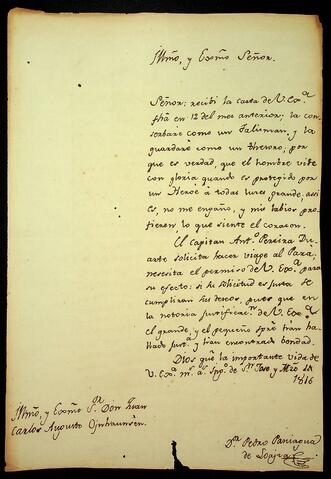 Illmo, y Exmo Señor.
Señor: recibi la carta de V. Exa
fha en 12 del mes anterior; la con
serbaré como un Talisman, y la
guardaré como un thesoro; por
que es verdad, que el hombre vibe
con gloria quando es protegido por
un Heroe à todas luces grande, assi
es, no me engaño, y mis labios pro
fieren lo que siente el corazon.
El Capitan Anto. Pereira Du
arte solicita hacer viage al Parà,
nesesita el permiso de V. Exa. para
su efecto: si su solicitud es justa se
cumpliran sus deceos, pues que en
la notoria justificacn. de V. Exa.
el grande, y el pequeño spre han
hallado justa. y han encontrado bondad.
Dios que la importante vida de
V. Exa. ms. as. Sn. y Mzo
1816
Illmo, y Exmo Sr. Don Juan
Carlos Augusto
Dn. Pedro Paniagua
de Loayza